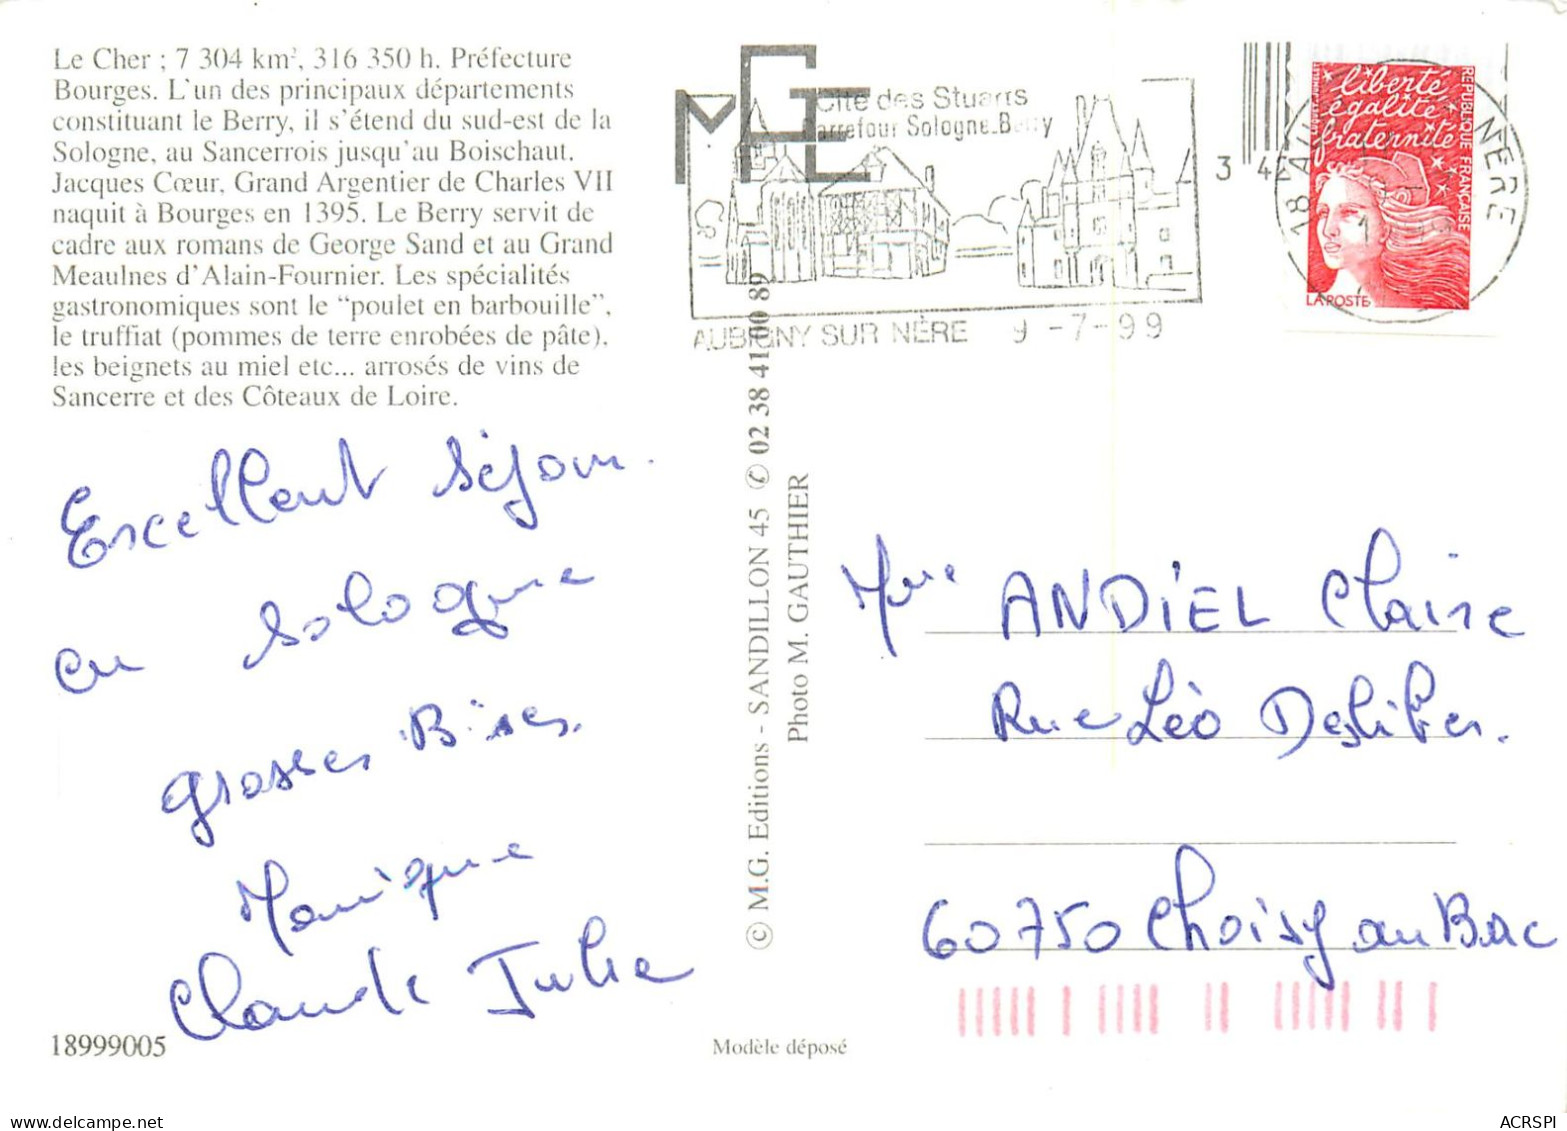 Le Cher ; 7 304 km², 316 350 h. Préfecture
Bourges. L'un des principaux départements
constituant le Berry, il s'étend du sud-est de la
Sologne, au Sancerrois jusqu'au Boischaut.
Jacques Cœur, Grand Argentier de Charles VII
naquit à Bourges en 1395. Le Berry servit de
cadre aux romans de George Sand et au Grand
Meaulnes d'Alain-Fournier. Les spécialités
gastronomiques sont le "poulet en barbouille",
le truffiat (pommes de terre enrobées de pâte),
les beignets au miel etc... arrosés de vins de
Sancerre et des Côteaux de Loire.
Excellent séjour.
en Sologne
grosses Bises.
Monique
Claude Julie
18999005
Modèle déposé
© M.G. Editions - SANDILLON 45 ✆ 02 38 41 00 89
Photo M. GAUTHIER
Cité des Stuarts
Carrefour Sologne.Berry
AUBIGNY SUR NÈRE 9 -7-99
liberté
égalité
fraternité
REPUBLIQUE FRANÇAISE
LA POSTE
Mme ANDIEL Claire
Rue Léo Deslibes.
60750 Choisy au Bac
ACRSPI